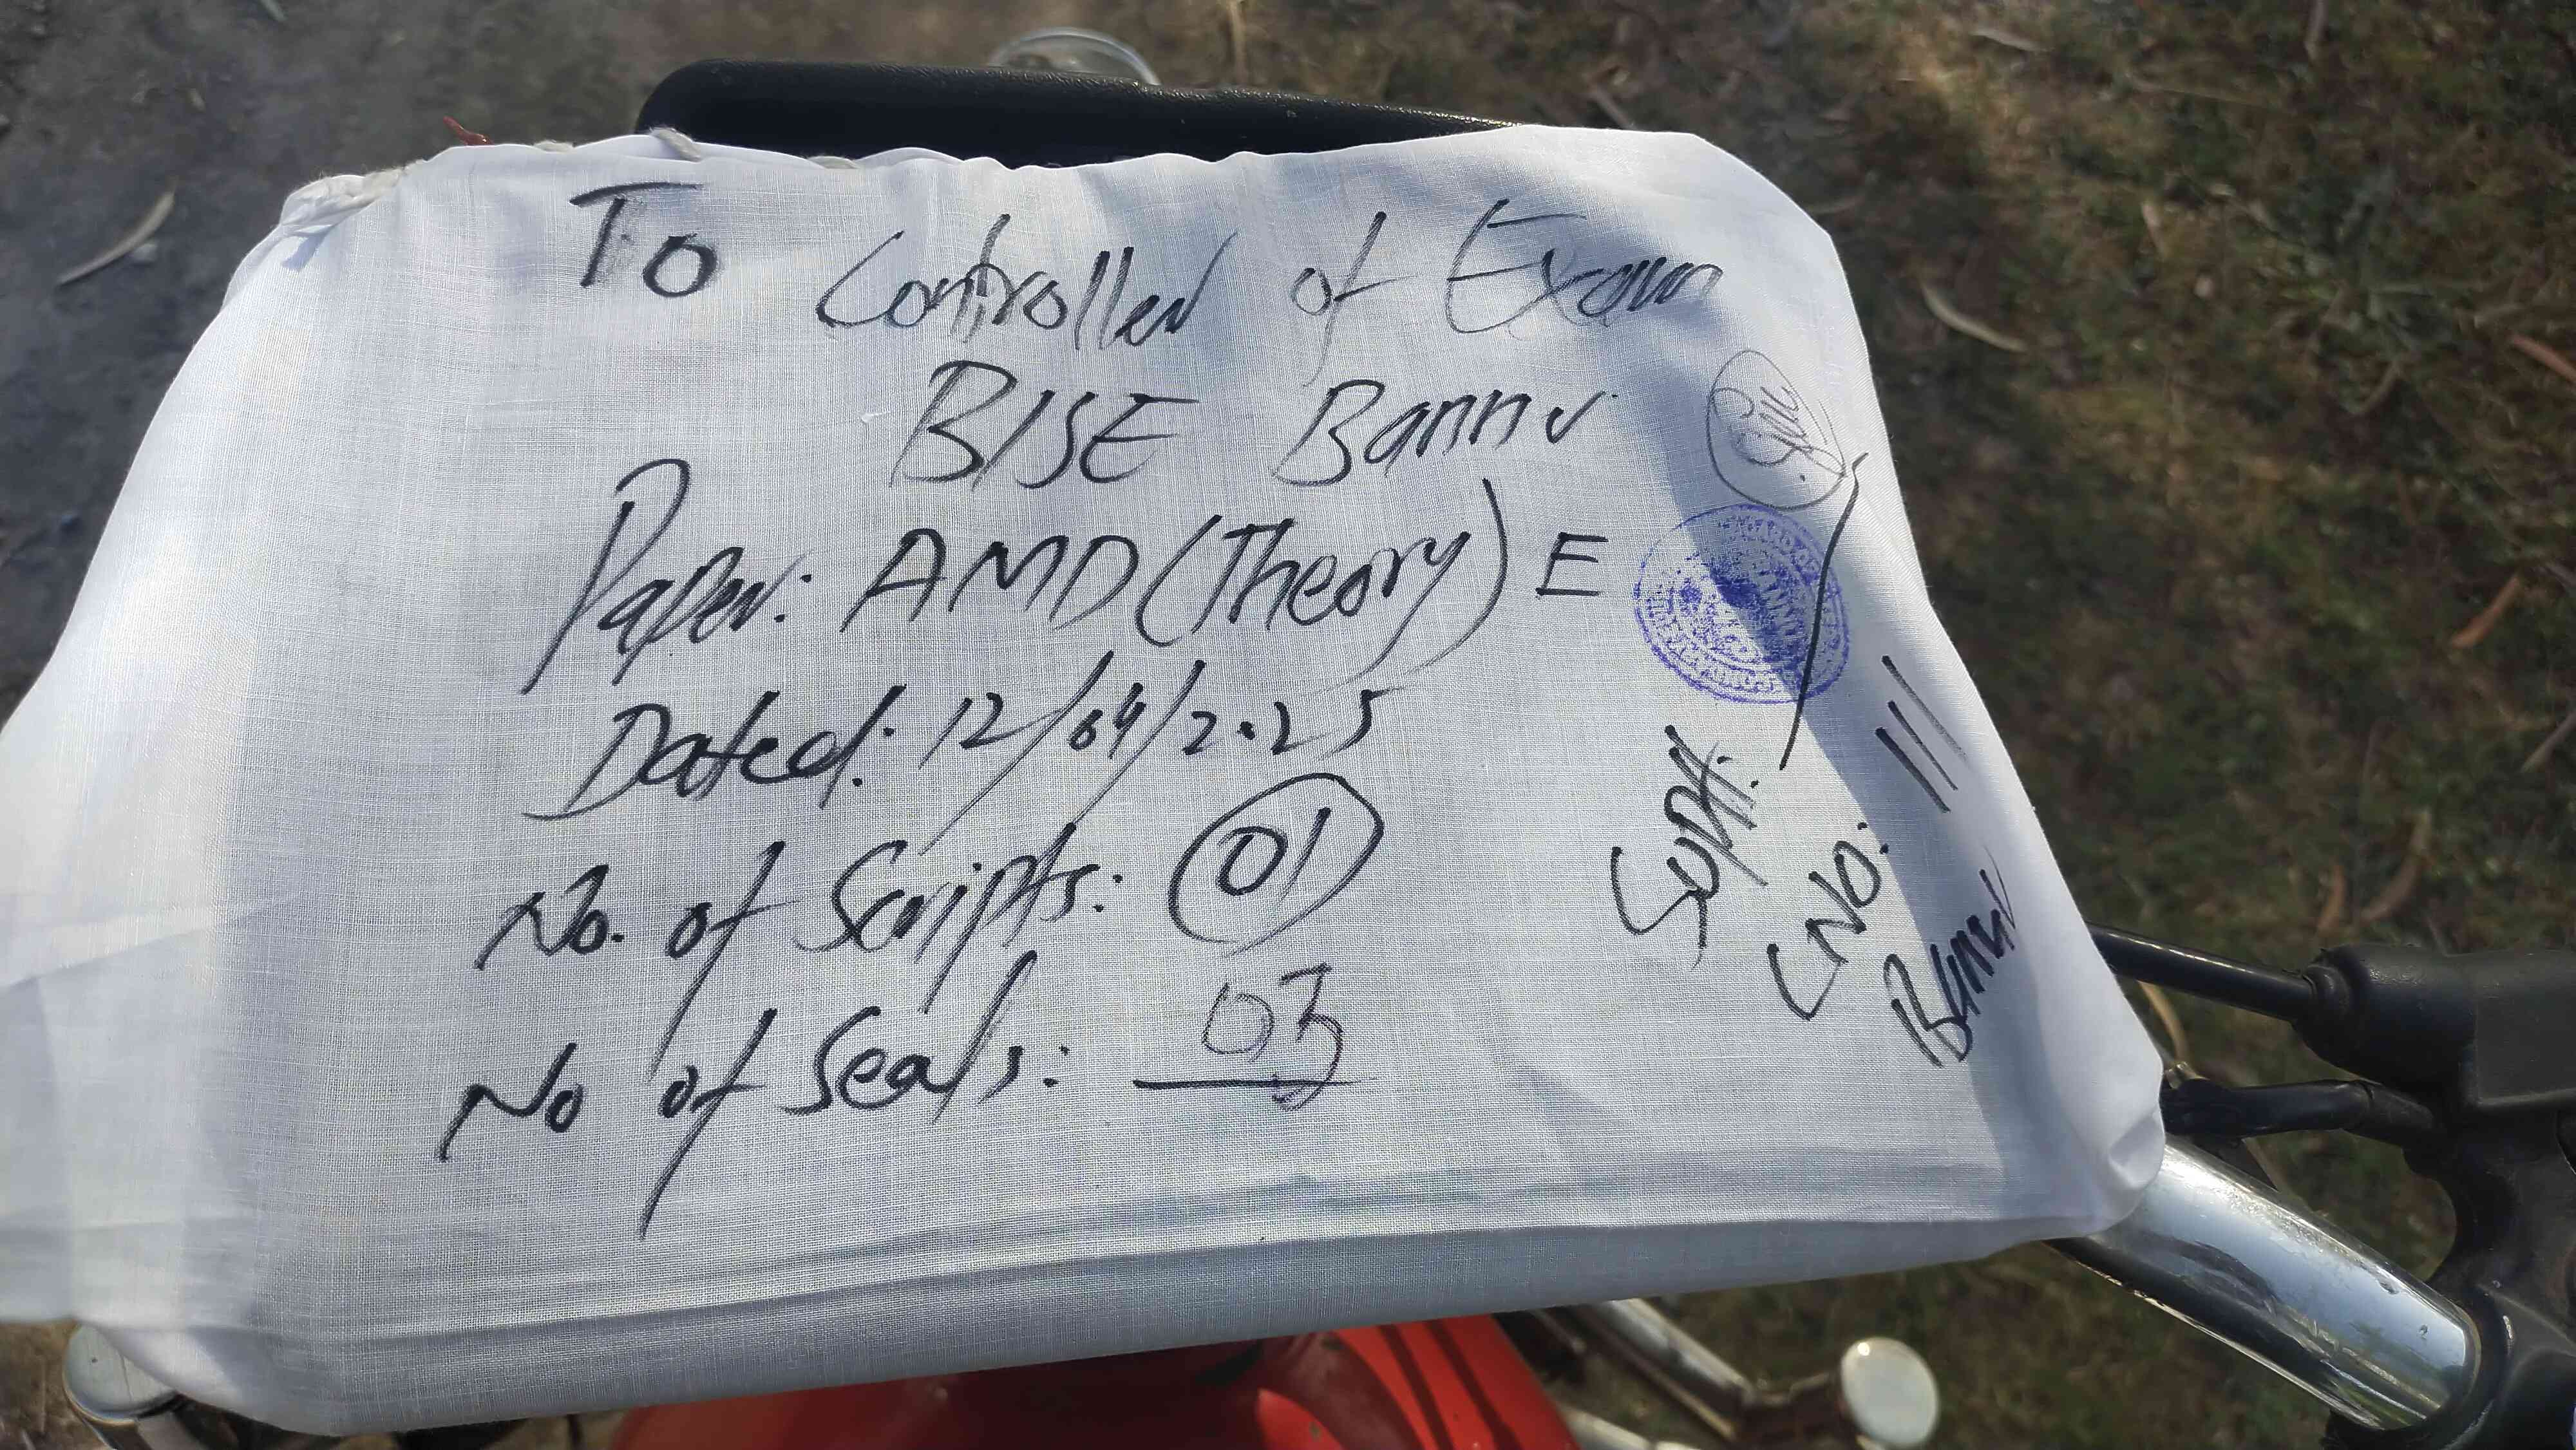 To Controller of Exam
BISE Bannu
Paper: AMD (Theory) E
Dated: 12/04/2025
No. of Scripts: 01
No of Seals: 03
Supdt:
CNO: 111
Bannu